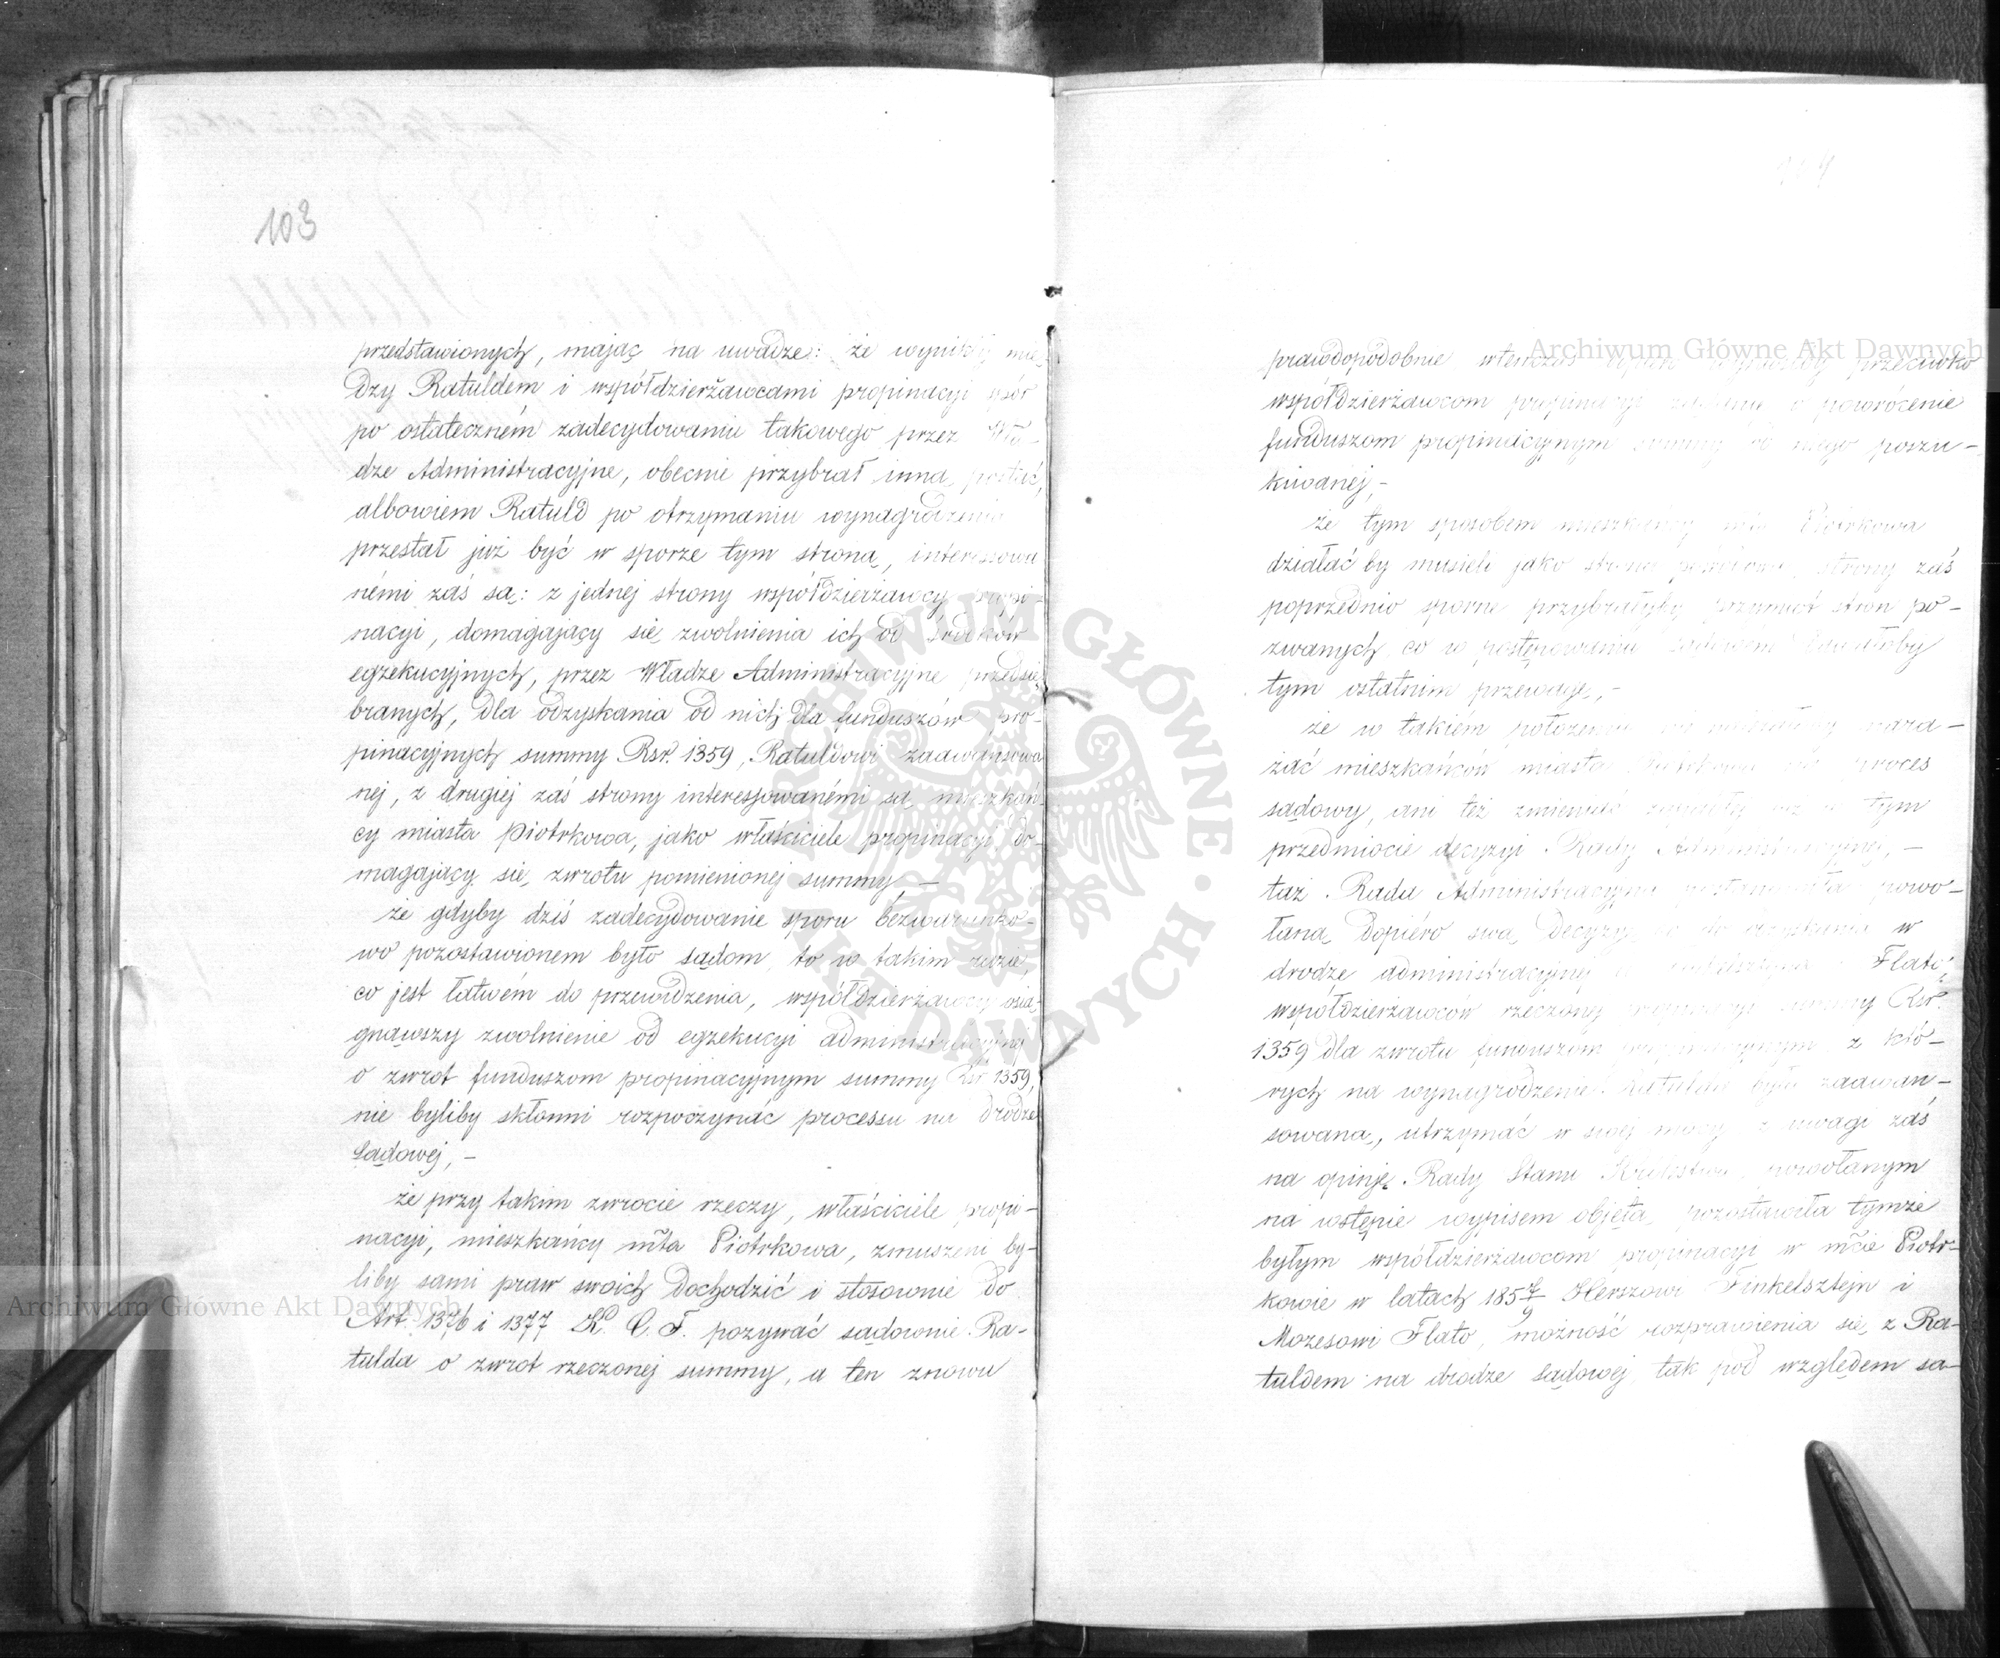 103
przedstawionych, mając na uwadze: że wynikły mię-
dzy Ratuldem i współdzierżawcami propinacyi spór
po ostateczném zadecydowaniu takowego przez Wła-
dze Administracyjne, obecnie przybrał inną postać,
albowiem Ratuld po otrzymaniu wynagrodzenia
przestał już być w sporze tym stroną, interessowa
némi zaś są: z jednej strony współdzierżawcy propi-
nacyi, domagający się zwolnienia ich od środków
egzekucyjnych, przez Władze Administracyjne przedsię
branych, dla odzyskania od nich dla funduszów pro-
pinacyjnych summy Rsr. 1359, Ratuldowi zaawansowa
nej, z drugiej zaś strony interessowanémi są mieszkań
cy miasta Piotrkowa, jako właściciele propinacyi do-
magający się zwrotu pomienionej summy, —
że gdyby dziś zadecydowanie sporu bezwarunko-
wo pozostawionem było sądom, to w takim razie,
co jest łatwém do przewidzenia, współdzierżawcy osią-
gnąwszy zwolnienie od egzekucyi administracyjnej
o zwrot funduszom propinacyjnym summy Rsr 1359,
nie byliby skłonni rozpoczynać processu na drodze
sądowej, —
że przy takim zwrocie rzeczy, właściciele propi-
nacyi, mieszkańcy mta Piotrkowa, zmuszeni by-
liby sami praw swoich dochodzić i stosownie do
Art. 1376 i 1377 K. C. F. pozywać sądownie Ra-
tulda o zwrot rzeczonej summy, a ten znowu
prawdopodobnie wtenczas przeciwko
współdzierżawcom propinacyi o powrócenie
funduszom propinacyjnym summy od niego poszu-
kiwanej, —
że tym sposobem mieszkańcy mta Piotrkowa
działać by musieli jako strona strony zaś
poprzednio sporne przybrałyby przymiot stron po-
zwanych, co w postępowaniu sądowem dawałoby
tym ostatnim przewagę, —
że w takiem położeniu nara-
żać mieszkańców miasta Piotrkowa na proces
sądowy, ani też zmieniać w tym
przedmiocie decyzyi Rady Administracyjnej, —
taż Rada Administracyjna postanowiła powo-
łaną dopiéro swą decyzyę co do odzyskania w
drodze administracyjnej od Flato,
współdzierżawców rzeczonej propinacyi summy Rsr.
1359 dla zwrotu funduszom propinacyjnym, z któ-
rych na wynagrodzenie Ratulda była zaawan-
sowaną, utrzymać w swej mocy, z uwagi zaś
na opinję Rady Stanu Królestwa, powołanym
na wstępie wypisem objętą, pozostawiła tymże
byłym współdzierżawcom propinacyi w mcie Piotr-
kowie w latach 1857/9 Herszowi Finkelsztejn i
Mozesowi Flato, możność rozprawienia się z Ra-
tuldem na drodze sądowej, tak pod względem sa-
Archiwum Główne Akt Dawnych
Archiwum Główne Akt Dawnych
ARCHIWUM GŁÓWNE AKT DAWNYCH